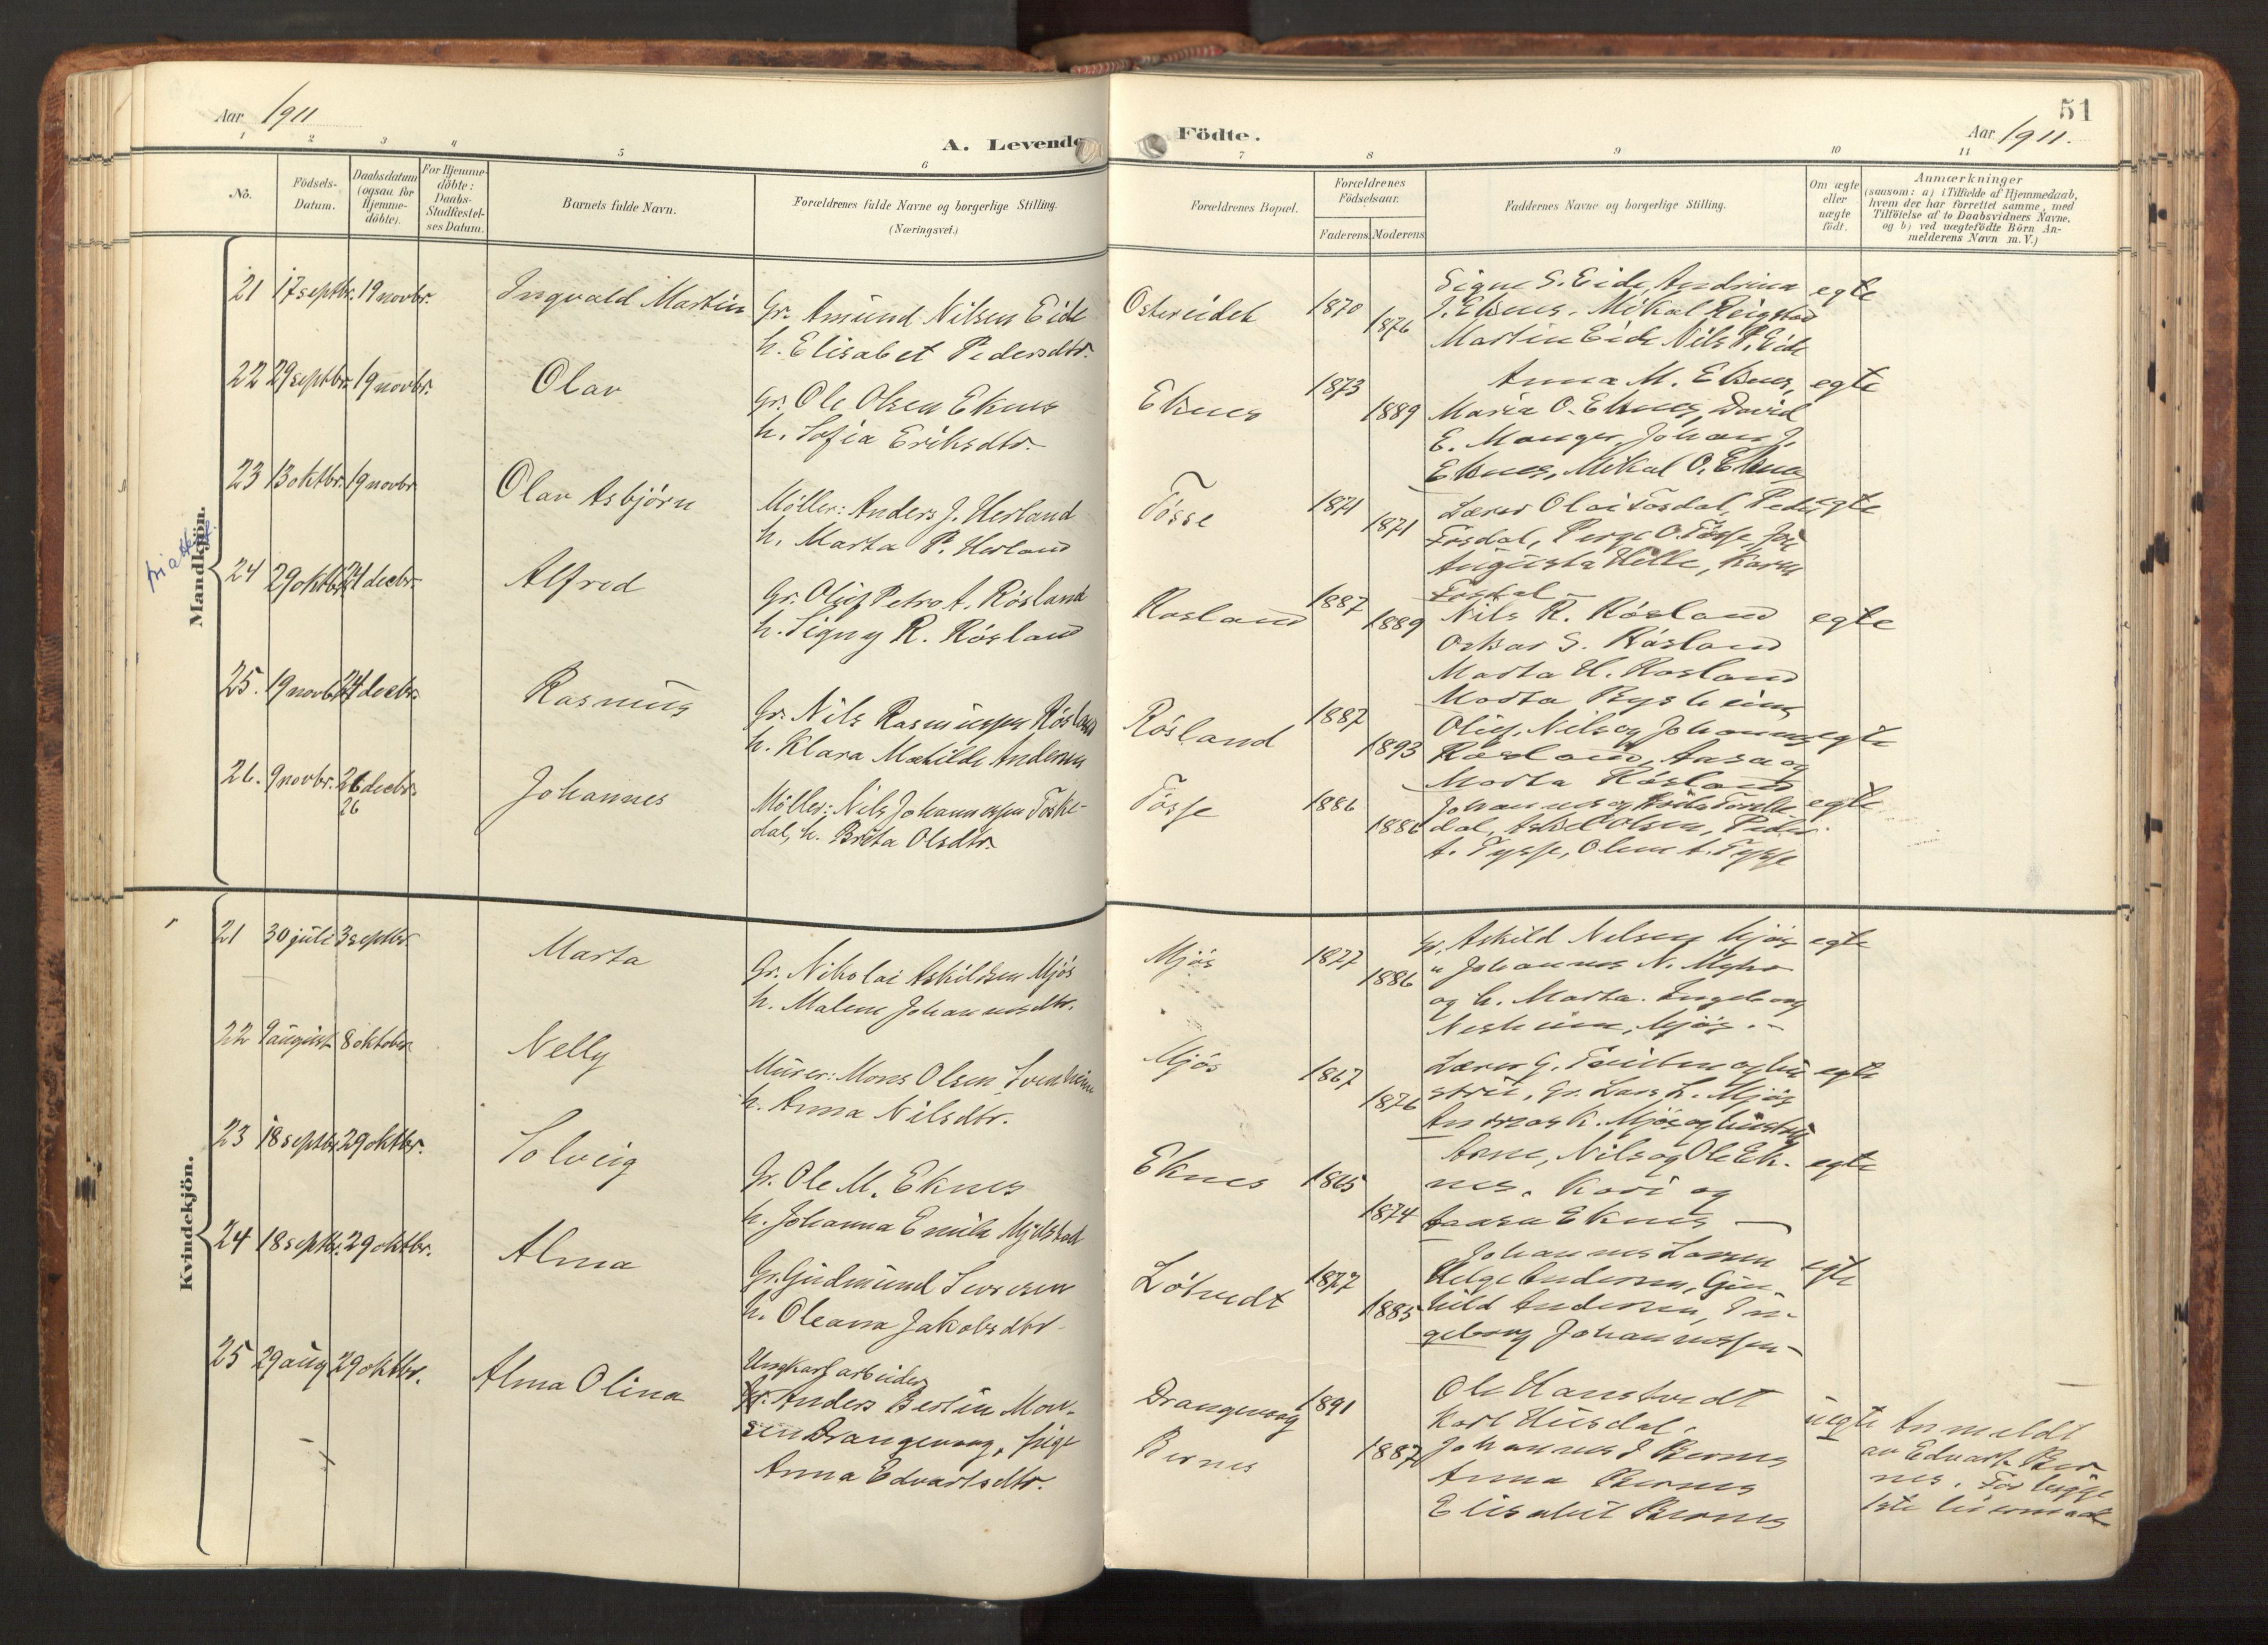 Aar 1911
A. Levende
Födte.
51
Aar 1911.
1 2 3 4 5 6 7 8 9 10 11
No.
Födsels-
Datum.
Daabsdatum
(ogsaa for
Hjemme-
döbte).
For Hjemme-
döbte:
Daabs-
Stadfæstel-
ses Datum.
Barnets fulde Navn.
Forældrenes fulde Navne og borgerlige Stilling.
(Næringsvei.)
Forældrenes Bopæl.
Forældrenes
Födselsaar.
Faderens. Moderens.
Faddernes Navne og borgerlige Stilling.
Om ægte
eller
uægte
födt.
Anmærkninger
(saasom: a) i Tilfælde af Hjemmedaab,
hvem der har forrettet samme, med
Tilföielse af to Daabsvidners Navne,
og b) ved uægtefödte Börn An-
melderens Navn m. V.)
Mandkjön.
21 17 septbr. 19 novbr.
Ingvald Martin
Gr. Amund Nilsen Eide
h. Elisabet Pedersdtr.
Ostereidet
1870
1876
Signe S. Eide, Andrina
J. Eknes. Mikal Reigstad
Martin Eide Nils P. Eide
egte
22 29 septbr. 19 novbr.
Olav
Gr. Ole Olsen Eknes
h. Sofia Eriksdtr.
Eknes
1873
1889
Anna M. Eknes,
Maria O. Eknes, David
E. Manger, Johan J.
Eknes, Mikal O. Eknes
egte
23 13 oktbr. 19 novbr
Olav Asbjörn
Möller: Anders J. Herland
h. Marta P. Herland
Tösse
1871
1871
Lærer Olai Fosdal, Peder
Fosdal, O. Tösse
Augusta Hille, Karen
Fosdal
egte
24 29 oktbr. 24 decbr.
Alfred
Gr. Oluf Petro A. Rösland
h. Signy R. Rösland
Rosland
1887
1889
Nils R. Rösland
Oskar S. Rösland
Marta H. Rosland
Marta Bysheim
egte
25. 19 novbr. 24 decbr.
Rasmus
Gr. Nils Rasmussen Rösland
h. Klara Matilde Andersen
Rösland
1887
1893
Oluf, Nils og Johannes
Rösland, Aasa og
Marta Rösland
egte
26. 9 novbr. 26 decbr.
26
Johannes
Möller: Nils Johannessen Toske-
dal, h. Brita Olsdtr.
Tösse
1886
1886
Johannes og Toske-
dal, Askel Olsen, Peder
A. Tysse, Olene A. Tysse
egte
Kvindekjön.
21 30 juli 3 septbr.
Marta
Gr. Nikolai Askildsen Mjös
h. Malene Johannesdtr.
Mjös
1877
1886
Gr. Askild Nilsen Mjös
" Johannes N. Myhr
og h. Marta. Ingeborg
Nesheim, Mjös.
egte
22 9 august 8 oktober
Nelly
Murer: Mons Olsen Svenheim
h. Anna Nilsdtr.
Mjös
1867
1876
Lærer G. og hu
stru, Gr. Lars L. Mjös
Andreas K. Mjös og hustru
egte
23 18 septbr. 29 oktbr.
Solveig
Gr. Ole M. Eknes
h. Johanna Emile Mjelstad
Eknes
1865
1874
Arne, Nils og Ole Ek-
nes. Kari og
Aasa Eknes
egte
24 18 septbr. 29 oktbr.
Alma
Gr. Gudmund Iversen
h. Oleana Jakobsdtr.
Lötvedt
1877
1885
Johannes Larsen
Helge Andersen, Gun-
hild Andersen, In-
geborg Johannessen
egte
25 29 aug 29 oktbr.
Alma Olina
Ungkarl arbeider
Gr. Anders Bertin Mon-
sen Drangevaag, pige
Anna Edvartsdtr.
Drangevaag
Bernes
1891
1887
Ole Hanstvedt
Karl Husdal.
Johannes E Bernes
Anna Bernes
Elisabet Bernes
uegte
Anmeldt
av Edvart Ber
nes. For begge
1ste leiermaal